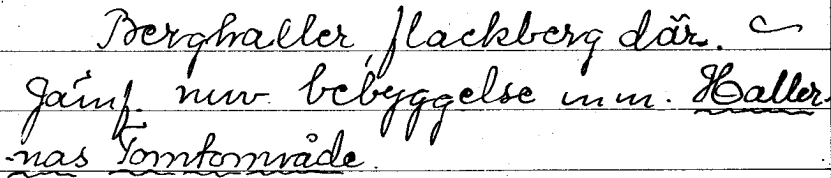 Berghaller, flackberg där. ~
Jämf. nuv. bebyggelse m.m. Haller-
nas Tomtområde.